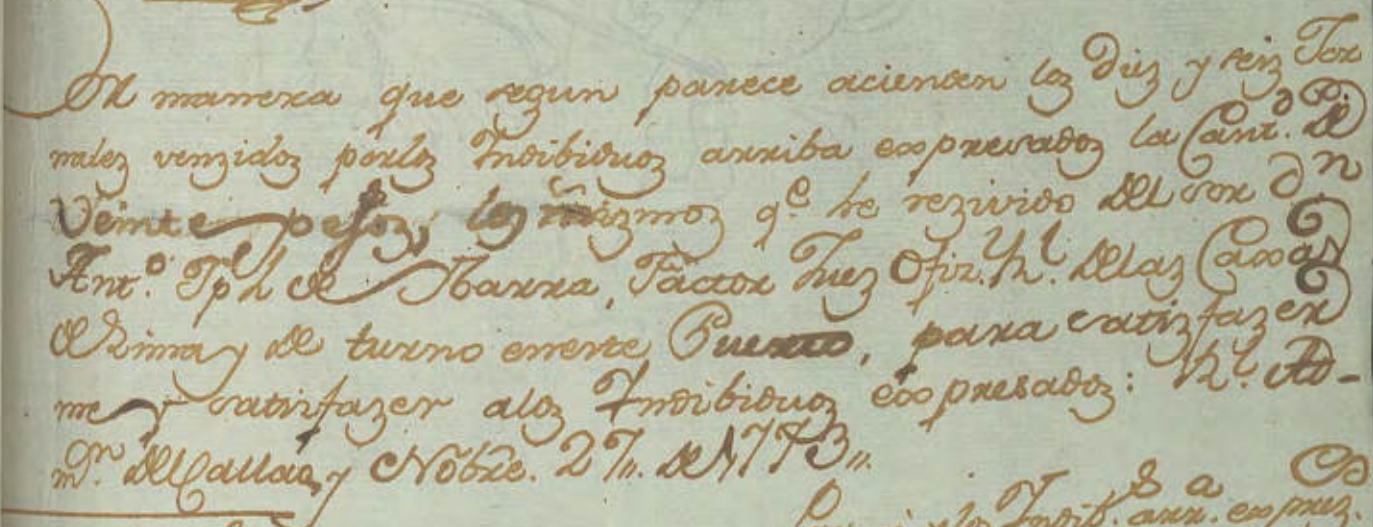 De manera que segun parece aciencen los Diez y seis Jor
nales venzidos por los Indibiduos arriba expresados la Cant.d de
Veinte pesos, los mismos q.e he rezivido del Sor Dn
Ant.o Jph de Ybarra, Factor Juez Ofiz. Rl. de las Caxas
de Lima y de turno en este Puerto, para satisfazer
me y satisfazer a los Indibiduos expresados: Rl. Ad-
m.on del Callao, y Nobre. 27,, de 1773,,
los Indib.s arr.a expres.